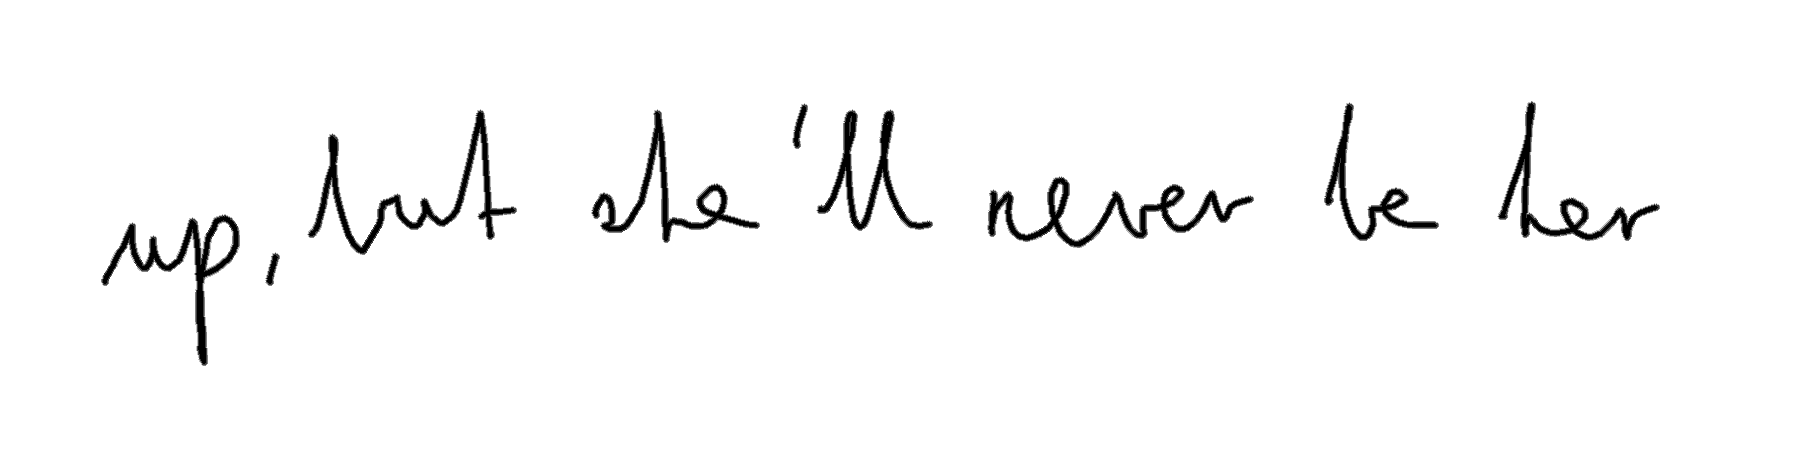 up, but she'll never be her